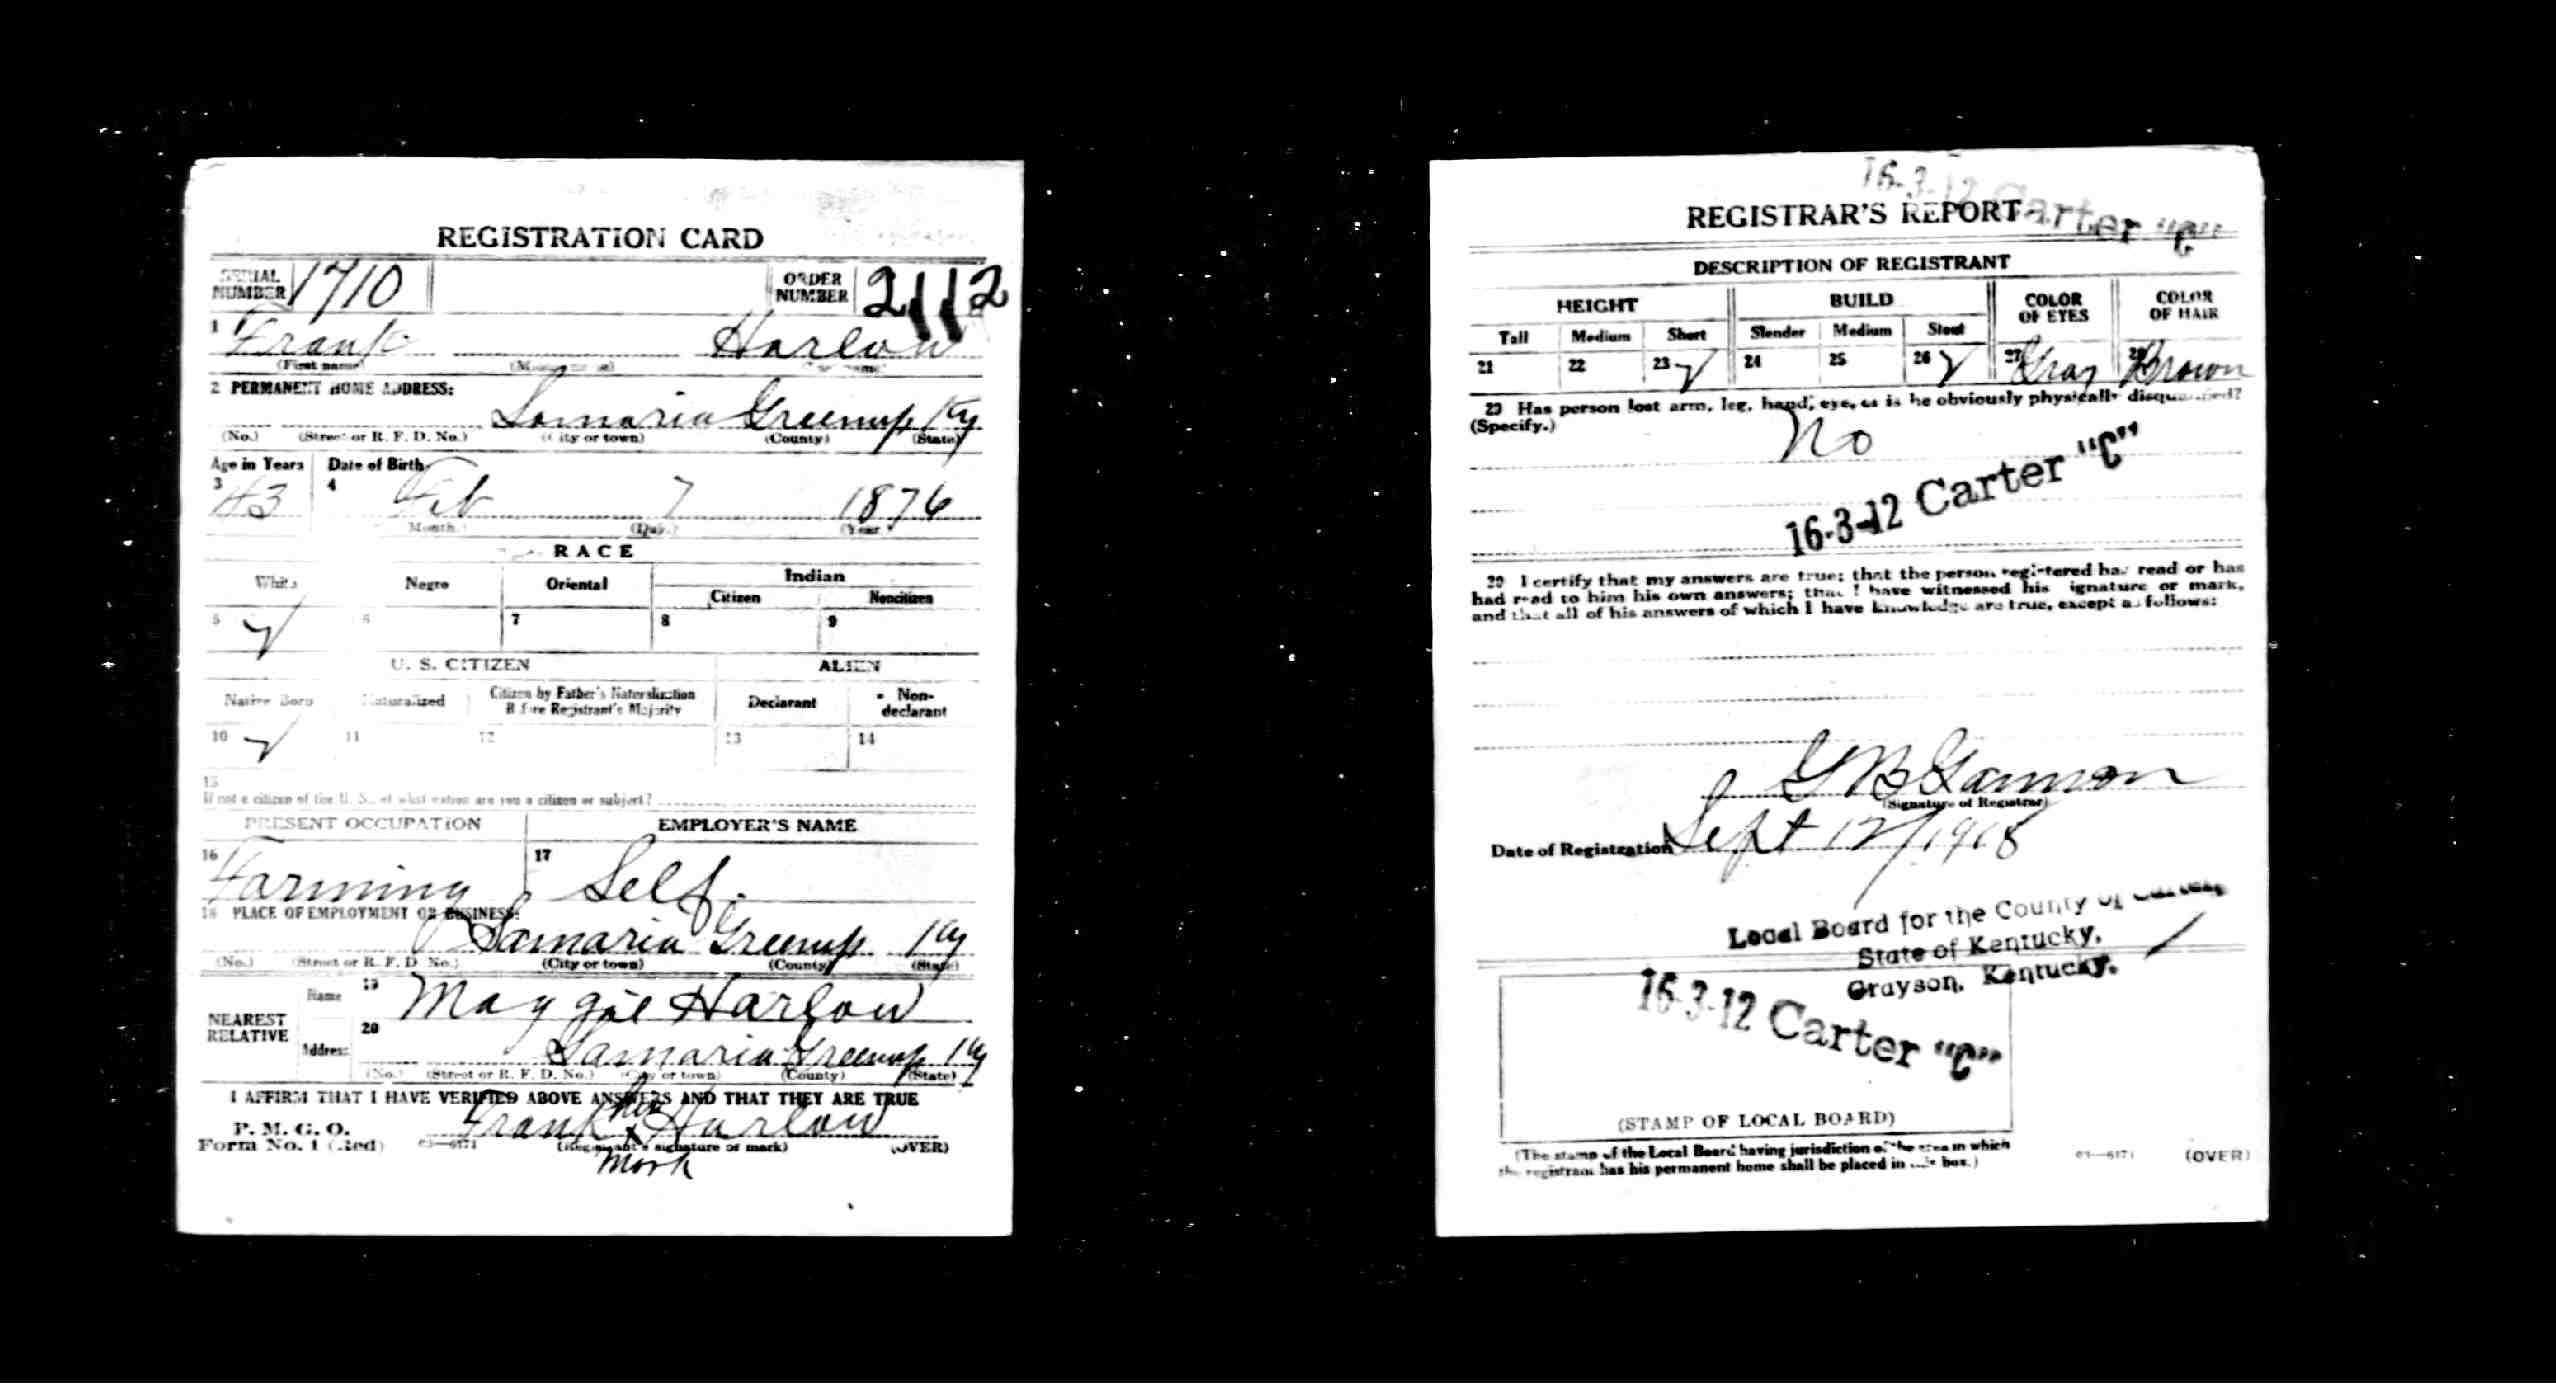 REGISTRATION CARD
SERIAL NUMBER 1710 ORDER NUMBER 2112
1 Frank Harlow
(First name)
2 PERMANENT HOME ADDRESS:
Samaria Greenup Ky
(No.) (Street or R. F. D. No.) (City or town) (County) (State)
Age in Years Date of Birth
3 43 4 Feb 7 1876
(Month.) (Day.) (Year.)
RACE
White Negro Oriental Indian
Citizen Noncitizen
5 ✓ 6 7 8 9
U. S. CITIZEN ALIEN
Native Born Naturalized Citizen by Father's Naturalization Before Registrant's Majority Declarant Non-declarant
10 ✓ 11 12 13 14
15
If not a citizen of the U. S., of what nation are you a citizen or subject?
PRESENT OCCUPATION EMPLOYER'S NAME
16 Farming 17 Self.
18 PLACE OF EMPLOYMENT OR BUSINESS:
Samaria Greenup Ky
(No.) (Street or R. F. D. No.) (City or town) (County) (State)
NEAREST RELATIVE
Name 19 Maggie Harlow
Address 20 Samaria Greenup Ky
(No.) (Street or R. F. D. No.) (City or town) (County) (State)
I AFFIRM THAT I HAVE VERIFIED ABOVE ANSWERS AND THAT THEY ARE TRUE
P. M. G. O.
Form No. 1 (Red) 03—6171
his
Frank X Harlow
(Registrant's signature or mark) (OVER)
mark
16-3-12 Carter "C"
REGISTRAR'S REPORT
DESCRIPTION OF REGISTRANT
HEIGHT BUILD COLOR OF EYES COLOR OF HAIR
Tall Medium Short Slender Medium Stout
21 22 23 ✓ 24 25 26 ✓ 27 Gray 28 Brown
29 Has person lost arm, leg, hand, eye, or is he obviously physically disqualified?
(Specify.) No
16-3-12 Carter "C"
30 I certify that my answers are true; that the person registered has read or has
had read to him his own answers; that I have witnessed his signature or mark,
and that all of his answers of which I have knowledge are true, except as follows:
(Signature of Registrar)
Date of Registration Sept 12/1918
Local Board for the County of Carter,
State of Kentucky,
Grayson, Kentucky.
16-3-12 Carter "C"
(STAMP OF LOCAL BOARD)
(The stamp of the Local Board having jurisdiction of the area in which
the registrant has his permanent home shall be placed in this box.)
03—6171 (OVER)